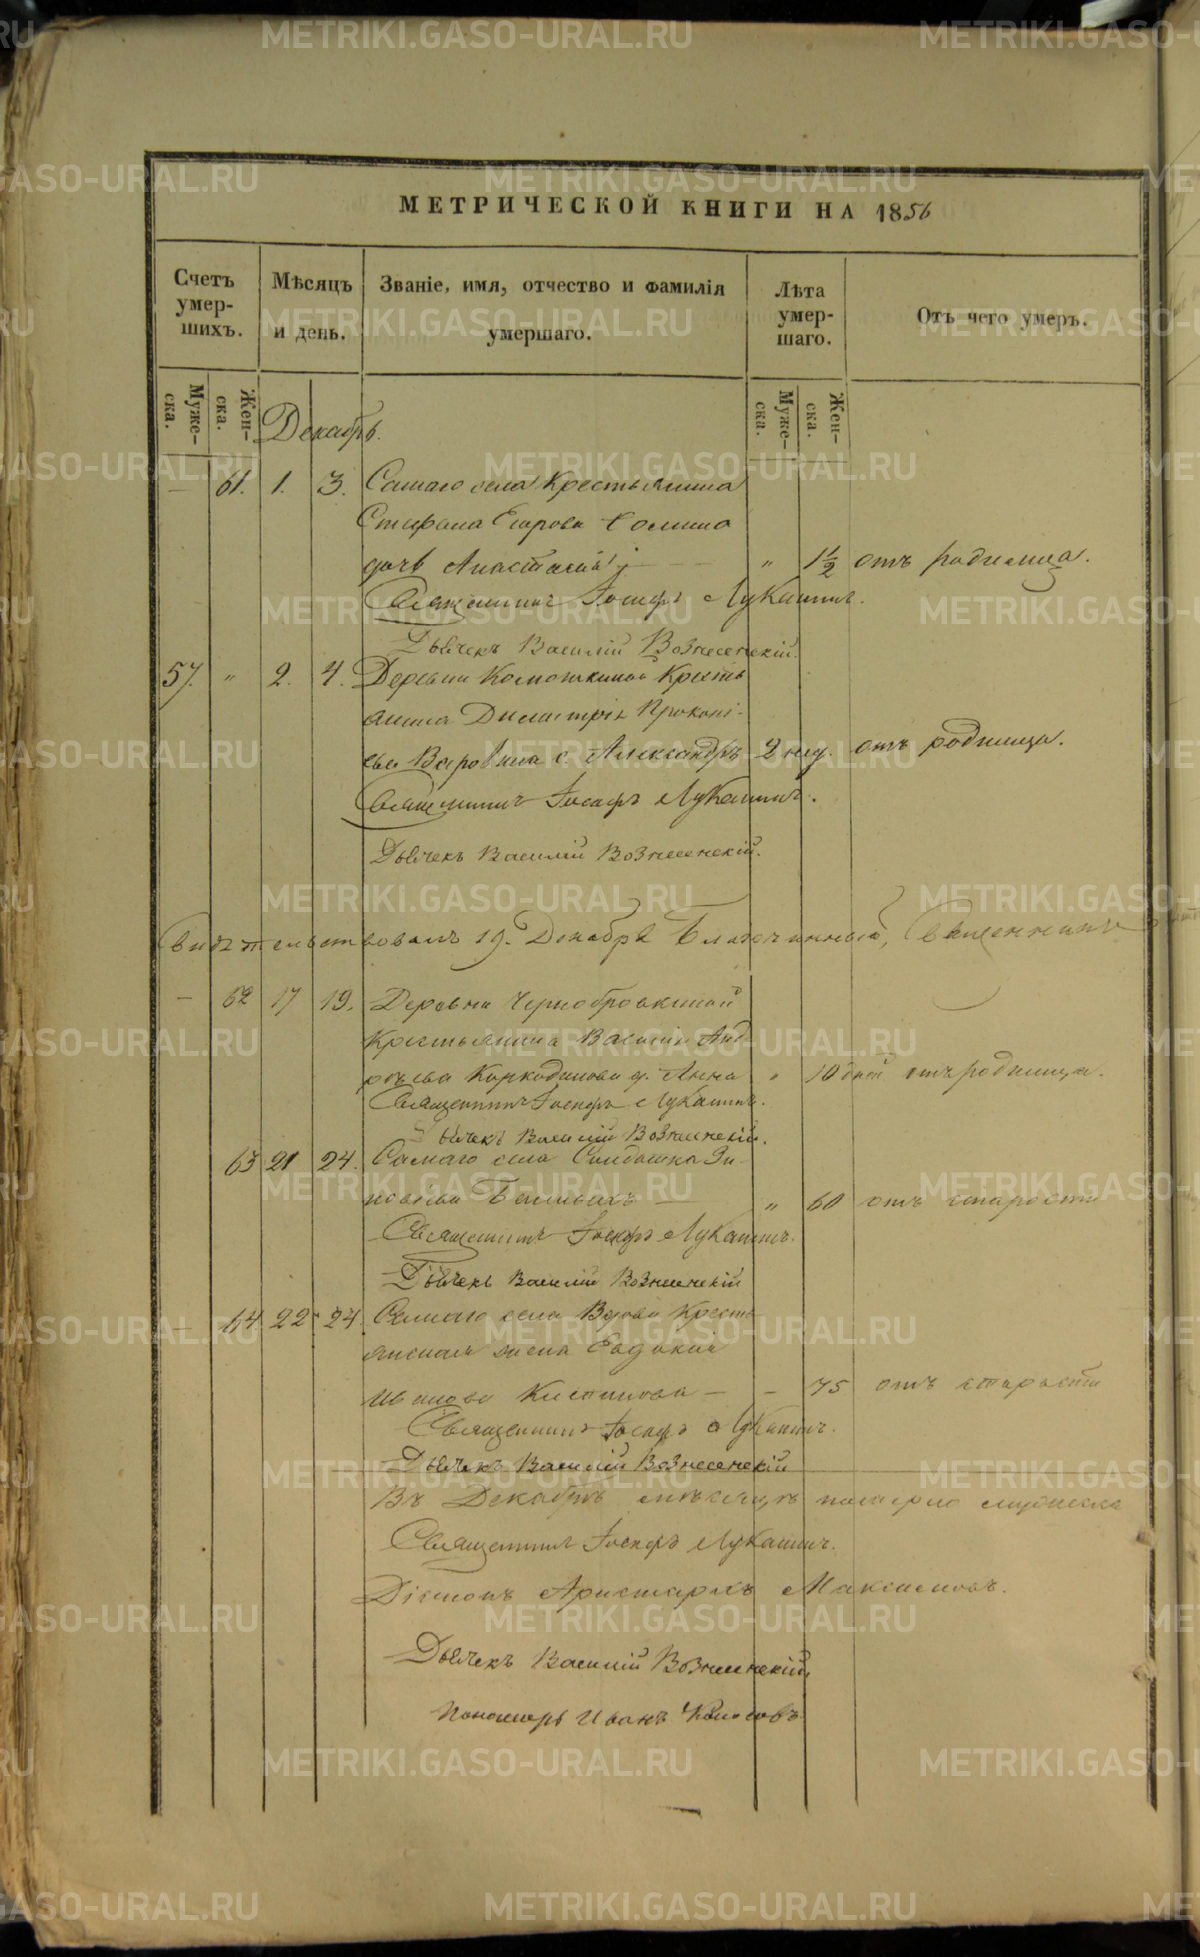 МЕТРИЧЕСКОЙ КНИГИ НА 1856
Счетъ умер-шихъ.
Мѣсяцъ и день.
Званіе, имя, отчество и фамилія умершаго.
Лѣта умер-шаго.
Отъ чего умеръ.
Муже-ска.
Жен-ска.
Муже-ска.
Жен-ска.
Декабрь.
— 61. 1. 3. Самаго села Крестьянина
Стефана Егорова
дочь Анастасія — " 1½ отъ родимца.
Священникъ Іосифъ Лукашинъ.
Дьячекъ Василій Вознесенскій.
57. " 2. 4. Деревни Крестья
нина Димитрія Прокопі-
ева с. Александръ 2 нед. отъ родимца.
Священникъ Іосифъ Лукашинъ.
Дьячекъ Василій Вознесенскій.
Свидѣтельствовалъ 19. Декабря Благочинный, Священникъ
— 62 17 19. Деревни Чернобровкиной
Крестьянина Василія Анд-
реева д. Анна " 10 дней отъ родимца.
Священникъ Іосифъ Лукашинъ.
Дьячекъ Василій Вознесенскій.
63 21 24. Самаго села Солдатка Зи-
новіева — " 60 отъ старости
Священникъ Іосифъ Лукашинъ.
Дьячекъ Василій Вознесенскій
— 64 22 24 Самаго села Вдова Крестья
янская жена Евдокія
Иванова — — 75 отъ старости
Священникъ Іосифъ Лукашинъ.
Дьячекъ Василій Вознесенскій
Въ Декабрѣ мѣсяцѣ померло мужеска
Священникъ Іосифъ Лукашинъ.
Діаконъ Аристархъ Максимовъ.
Дьячекъ Василій Вознесенскій
Пономарь Иванъ
METRIKI.GASO-URAL.RU